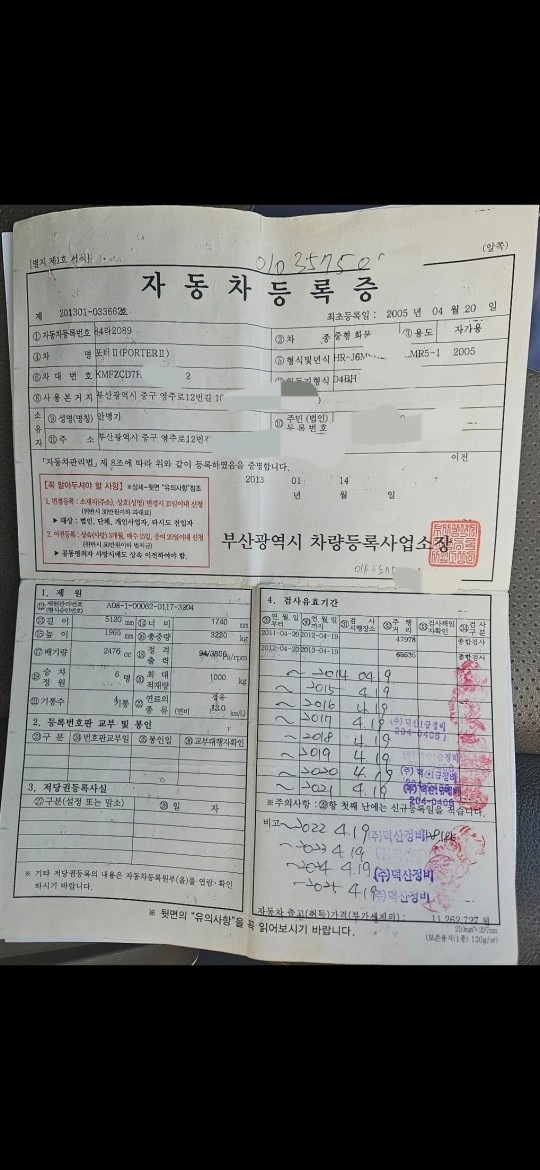 [별지 제1호 서식]
(앞쪽)
010 3575 0
자동차등록증
제 201301-033662호
최초등록일 : 2005 년 04 월 20 일
①자동차등록번호 84마2089 ②차 종 중형 화물 ③용도 자가용
④차 명 포터Ⅱ(PORTERⅡ) ⑤형식및년식 HR-J6M MR5-1 2005
⑥차 대 번 호 KMFZCD7H 2 D4BH
⑧사용본거지 부산광역시 중구 영주로12번길 10 )
소유자 ⑨성명(명칭) 안병기 ⑩주민(법인)등록번호
⑪주 소 부산광역시 중구 영주로12번
「자동차관리법」제8조에 따라 위와 같이 등록하였음을 증명합니다.
이전
2013 01 14
년 월 일
【꼭 알아두셔야 할 사항】 ※상세=뒷면 "유의사항"참조
1. 변경등록 : 소재지(주소), 상호(성명) 변경시 15일이내 신청
(위반시 30만원이하 과태료)
▶ 대상 : 법인, 단체, 개인사업자, 타시도 전입자
2. 이전등록 : 상속(사망) 3개월, 매수 15일, 증여 20일이내 신청
(위반시 50만원이하 범칙금)
▶ 공동명의자 사망시에도 상속 이전하여야 함.
부산광역시 차량등록사업소장
010 35
1. 제 원
⑫제원관리번호(형식승인번호) A08-1-00062-0117-3204
⑬길이 5120 mm ⑭너비 1740 mm
⑮높이 1965 mm ⑯총중량 3230 kg
⑰배기량 2476 cc ⑱정격출력 94/3800 Ps/rpm
⑲승차정원 6 명 ⑳최대적재량 1000 kg
㉑기통수 4기통 ㉒연료의종류 경유 (연비 13.0 km/L)
2. 등록번호판 교부 및 봉인
㉓구분 ㉔번호판교부일 ㉕봉인일 ㉖교부대행자확인
3. 저당권등록사실
㉗구분(설정 또는 말소) ㉘일 자
※ 기타 저당권등록의 내용은 자동차등록원부(을)를 열람·확인
하시기 바랍니다.
4. 검사유효기간
㉙연월일부터 ㉚연월일까지 ㉛검사시행장소 ㉜주행거리 ㉝검사책임자확인 ㉞검사구분
2011-04-20 2012-04-19 47978 종합검사
2012-04-20 2013-04-19 종합검사
~ 2014 04 19
~ 2015 4.19
~ 2016 4.19
~ 2017 4.19 (주)덕산1급정비 204-0408
~ 2018 4.19
~ 2019 4.19
~ 2020 4.19 (주)덕산1급정비
~ 2021 4.19 (주)덕산1급정비 204-0408
※주의사항 : ㉙항 첫째 난에는 신규등록일을 적습니다.
비고 ~2022 4.19 (주)덕산정비
~2023 4.19
~2024 4.19 (주)덕산정비
~2025 4.19 (주)덕산정비
자동차 출고(취득)가격(부가세제외) : 11,252,727 원
※ 뒷면의 "유의사항"을 꼭 읽어보시기 바랍니다.
210mm×297mm
(보존용지(1종) 120g/㎡)